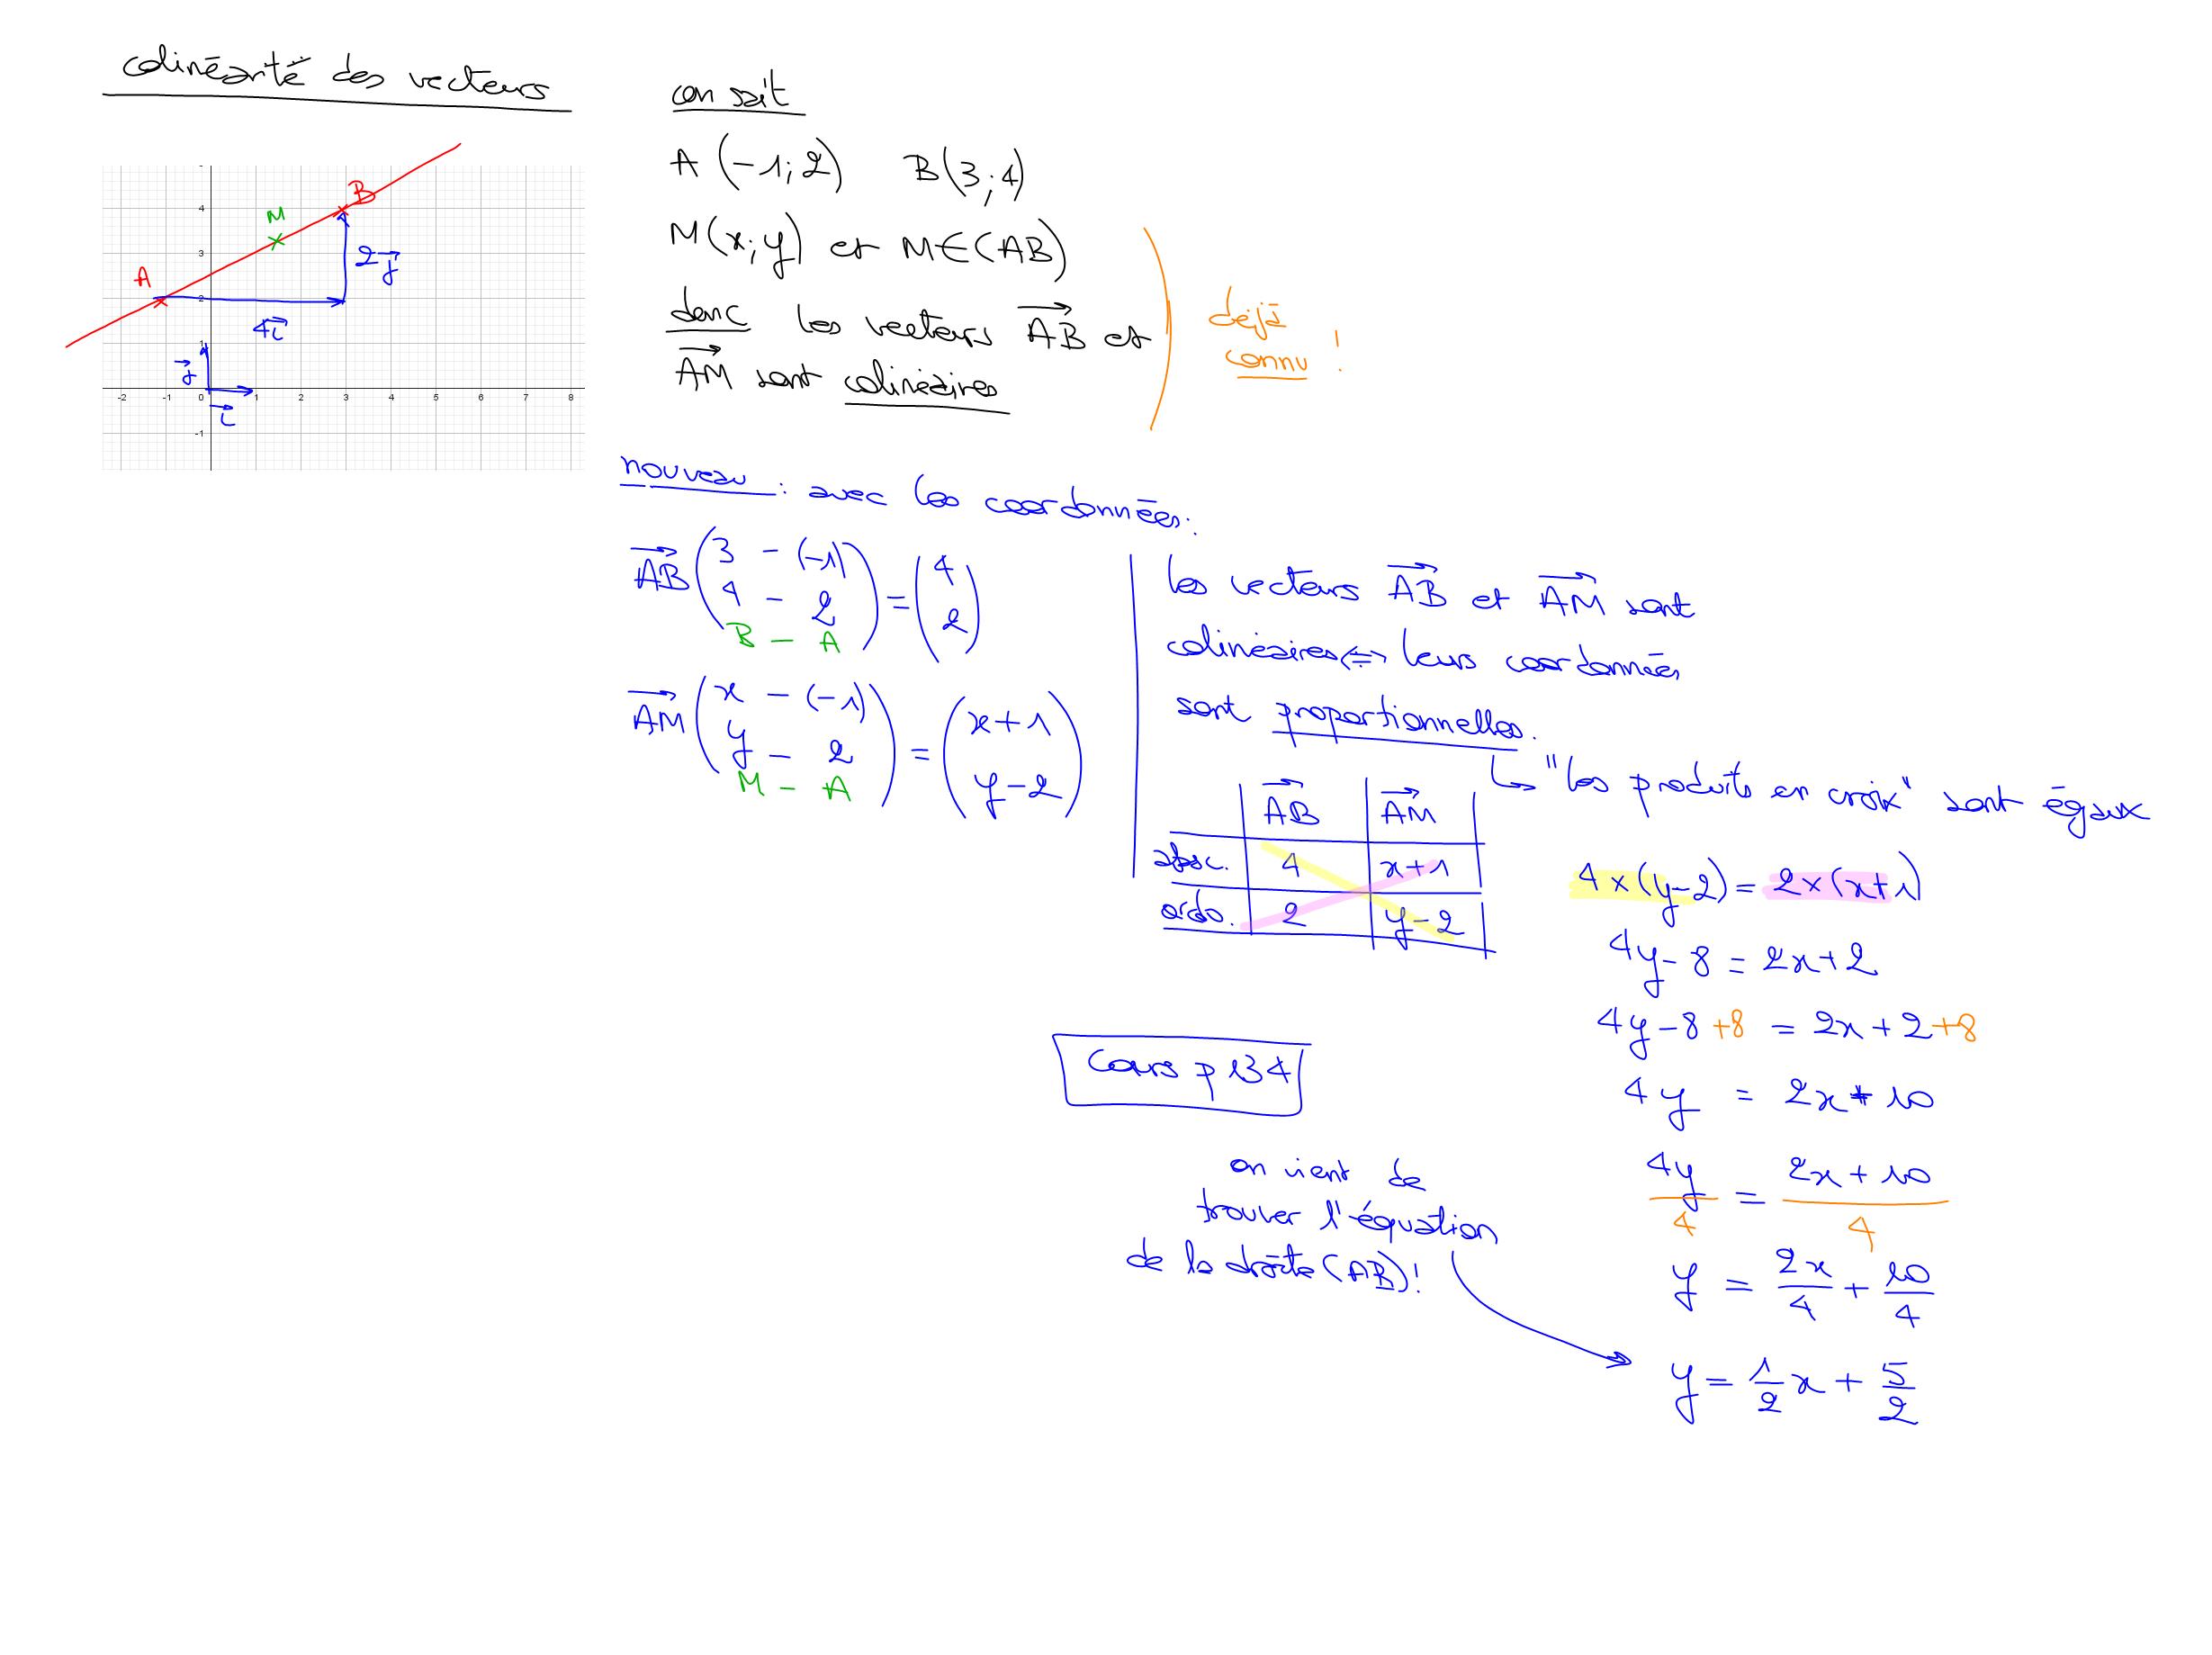 colinéarité des vecteurs
4
3
2
1
-1
-2 -1 0 1 2 3 4 5 6 7 8
A
M
B
2j⃗
4i⃗
j⃗
i⃗
on sait
A (-1;2) B(3;4)
M(x;y) et M∈(AB)
donc les vecteurs AB⃗ et
AM⃗ sont colinéaires
déjà
connu !
nouveau : avec les coordonnées.
AB⃗ (3 - (-1) ; 4 - 2) = (4 ; 2)
B - A
AM⃗ (x - (-1) ; y - 2) = (x+1 ; y-2)
M - A
les vecteurs AB⃗ et AM⃗ sont
colinéaires ⟺ leurs coordonnées
sont proportionnelles.
↳ "les produits en croix" sont égaux
AB⃗ AM⃗
absc. 4 x+1
ordo. 2 y-2
4×(y-2) = 2×(x+1)
4y-8 = 2x+2
4y-8+8 = 2x+2+8
4y = 2x+10
4y/4 = (2x+10)/4
y = 2x/4 + 10/4
y = 1/2 x + 5/2
Cours p 134
on vient de
trouver l'équation
de la droite (AB) !